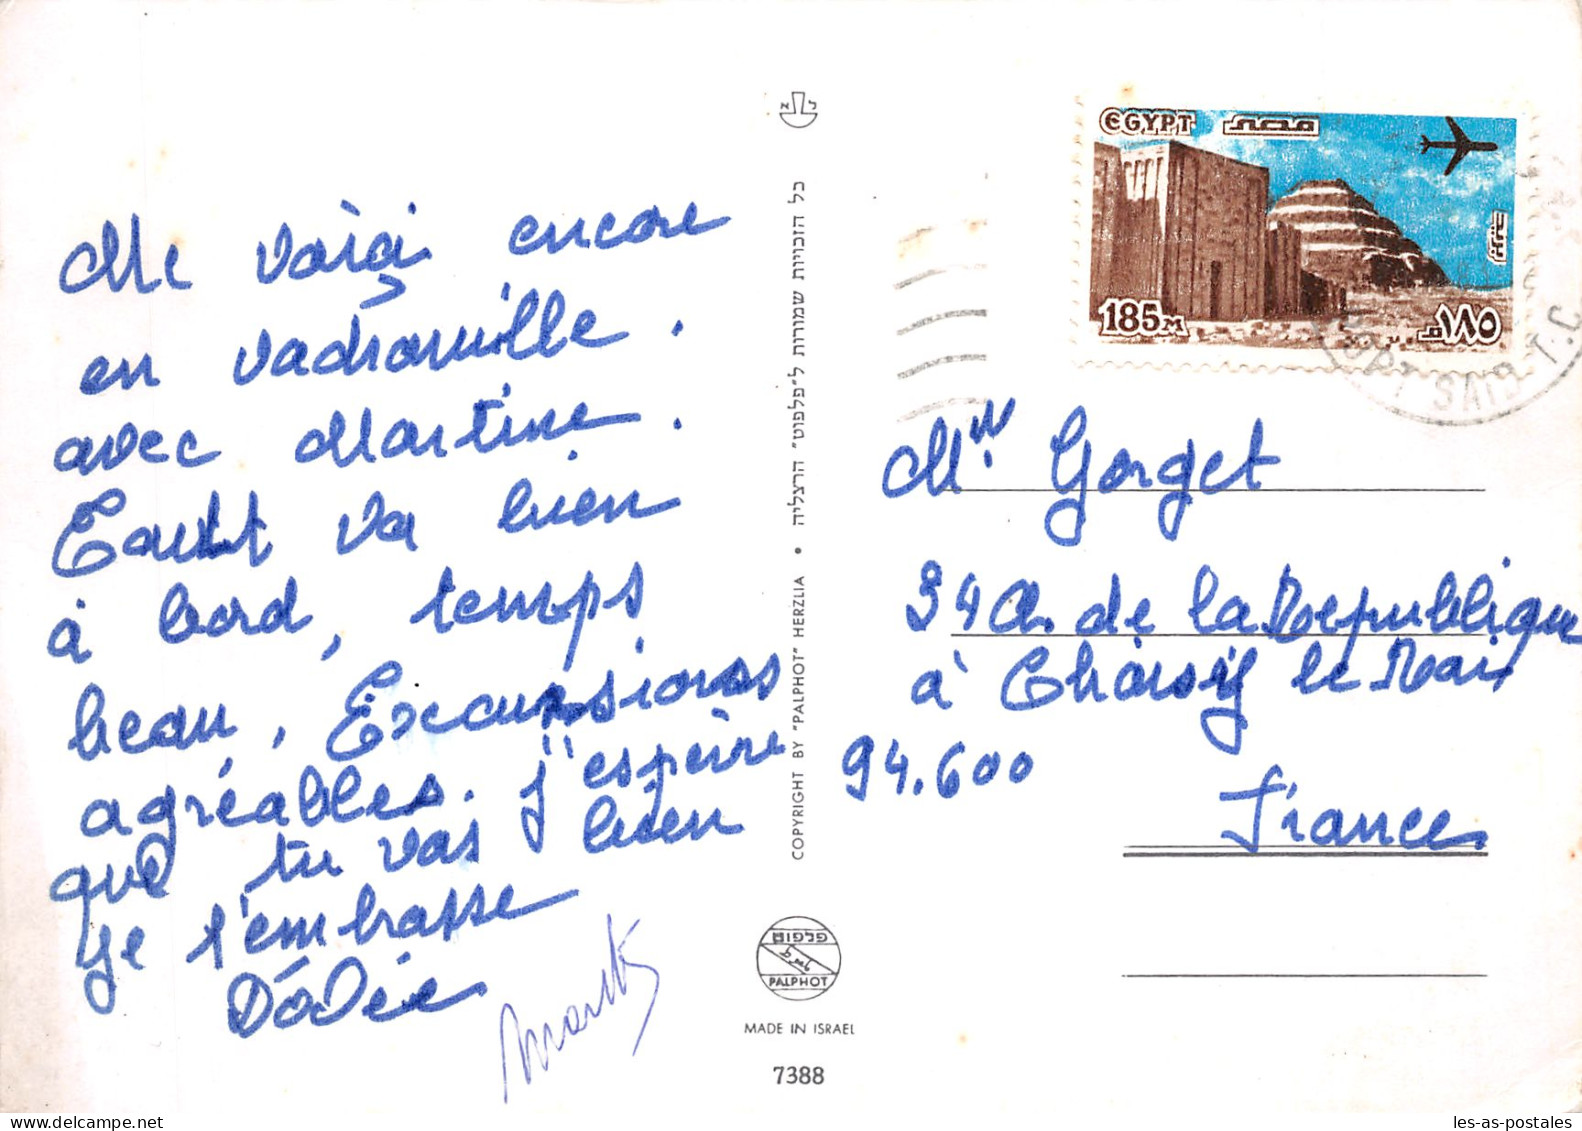 Me voiçi encore
en vadrouille.
avec Martine.
Tout va bien
à bord, temps
beau, Excursions
agréables. j'espère
que tu vas bien
je t'embrasse
Dédée
א ל
כל הזכויות שמורות ל"פלפוט" הרצליה • COPYRIGHT BY "PALPHOT" HERZLIA
פלפוט
PALPHOT
MADE IN ISRAEL
7388
EGYPT مصر
185M ١٨٥م
PORT SAID T.C
Mr Gorget
34 A. de la Republique
à Choisy le Roi
94.600
France
les-as-postales